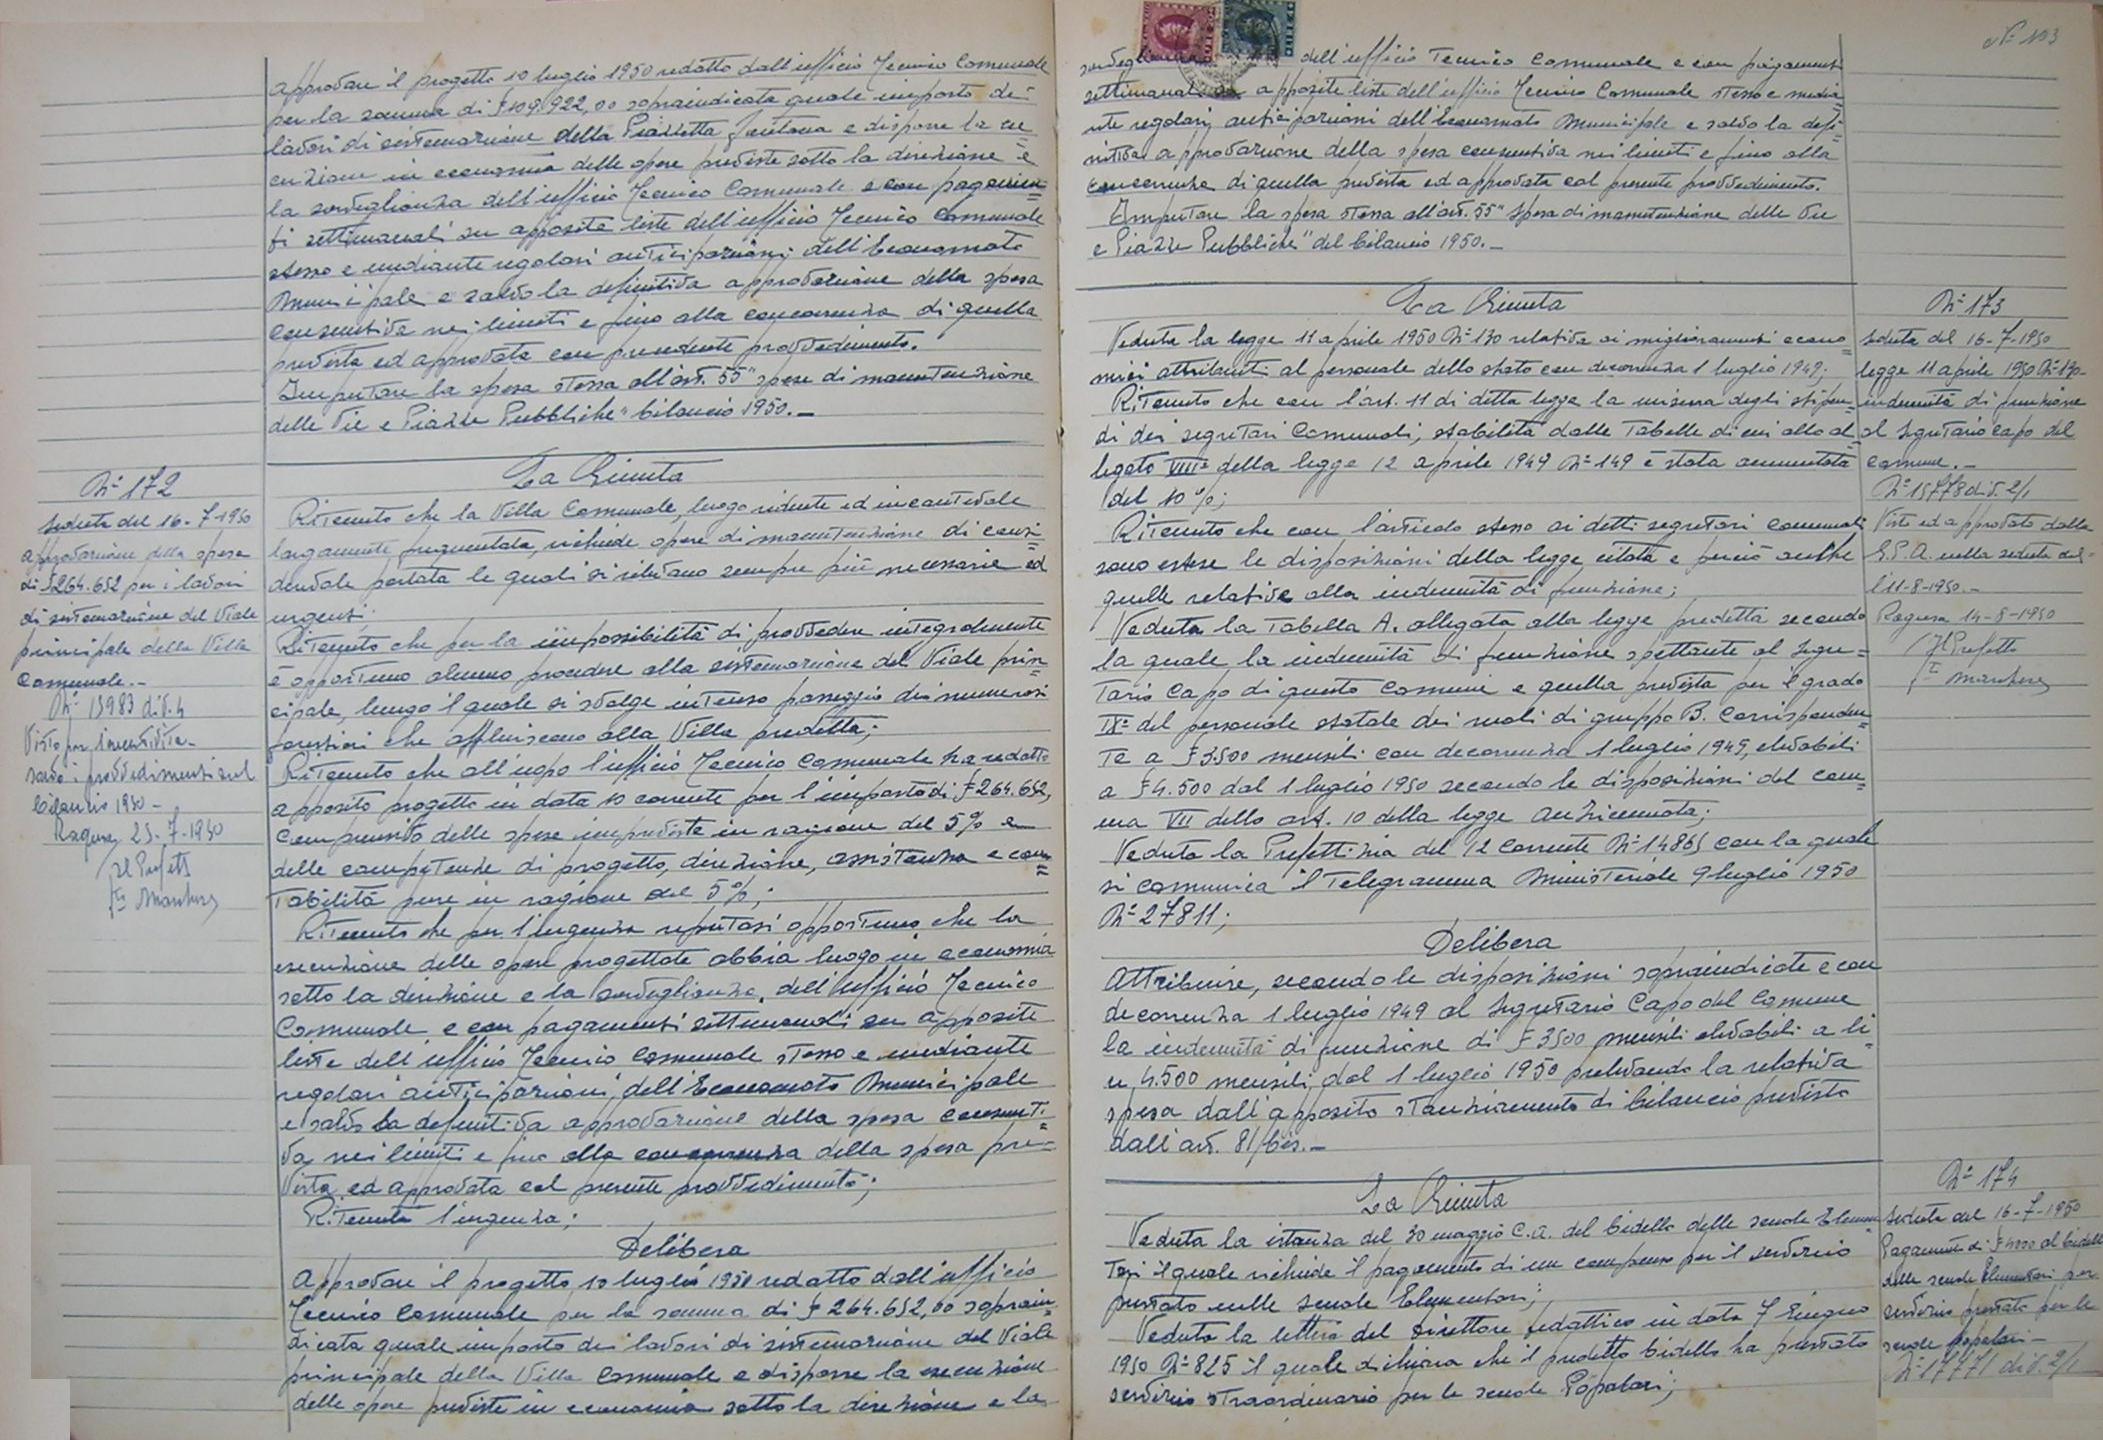 approvare il progetto 10 luglio 1950 redatto dall'ufficio Tecnico Comunale
per la somma di £109.922,00 sopraindicata quale importo dei
lavori di sistemazione della Piazzetta Fontana e disporre la ese=
cuzione in economia delle opere previste sotto la direzione e
la sorveglianza dell'ufficio Tecnico Comunale e con pagamen=
ti settimanali su apposite liste dell'ufficio Tecnico Comunale
stesso e mediante regolari anticipazioni dell'Economato
Municipale e salvo la definitiva approvazione della spesa
consuntiva nei limiti e fino alla concorrenza di quella
prevista ed approvata con presente provvedimento.
Imputare la spesa stessa all'art. 55 "spese di manutenzione
delle Vie e Piazze Pubbliche" bilancio 1950.-
N° 172
seduta del 16-7-1950
approvazione della spesa
di £264.652 per i lavori
di sistemazione del Viale
principale della Villa
Comunale.-
N° 15983 div. 4
Visto per l'esecutività-
salvo i provvedimenti sul
bilancio 1950-
Ragusa, 25-7-1950
Il Prefetto
La Giunta
Ritenuto che la Villa Comunale, luogo ridente ed incantevole
largamente frequentata, richiede opere di manutenzione di consi=
derevole portata le quali si rilevano sempre più necessarie ed
urgenti;
Ritenuto che per la impossibilità di provvedere integralmente
è opportuno almeno procedere alla sistemazione del Viale prin=
cipale, lungo il quale si svolge intenso passeggio dei numerosi
forestieri che affluiscono alla Villa predetta;
Ritenuto che all'uopo l'ufficio Tecnico Comunale ha redatto
apposito progetto in data 10 corrente per l'importo di £264.652,
comprensivo delle spese impreviste in ragione del 5% e
delle competenze di progetto, direzione, assistenza e con=
tabilità pure in ragione del 5%;
Ritenuto che per l'urgenza reputasi opportuno che la
esecuzione delle opere progettate abbia luogo in economia
sotto la direzione e la sorveglianza dell'ufficio Tecnico
Comunale e con pagamenti settimanali su apposite
liste dell'ufficio Tecnico Comunale stesso e mediante
regolari anticipazioni dell'Economato Municipale
e salvo la definitiva approvazione della spesa consunti=
va nei limiti e fino alla concorrenza della spesa pre=
vista ed approvata col presente provvedimento;
Ritenuta l'urgenza;
Delibera
Approvare il progetto 10 luglio 1950 redatto dall'ufficio
Tecnico Comunale per la somma di £264.652,00 soprain=
dicata quale importo dei lavori di sistemazione del Viale
principale della Villa Comunale e disporre la esecuzione
delle opere previste in economia sotto la direzione e la
N° 103
dell'ufficio Tecnico Comunale e con pagamenti
settimanali su apposite liste dell'ufficio Tecnico Comunale stesso e media=
nte regolari anticipazioni dell'Economato Municipale e salvo la defi=
nitiva approvazione della spesa consuntiva nei limiti e fino alla
concorrenza di quella prevista ed approvata col presente provvedimento.
Imputare la spesa stessa all'art. 55 "Spesa di manutenzione delle Vie
e Piazze Pubbliche" del bilancio 1950.-
La Giunta
Veduta la legge 11 aprile 1950 N° 130 relativa ai miglioramenti econo=
mici attribuiti al personale dello stato con decorrenza 1 luglio 1949;
Ritenuto che con l'art. 11 di detta legge la misura degli stipen=
di dei segretari Comunali, stabilita dalle Tabelle di cui allo al=
legato VIII° della legge 12 aprile 1949 N° 149 è stata aumentata
del 10%;
Ritenuto che con l'articolo stesso ai detti segretari comunali
sono estese le disposizioni della legge citata e perciò anche
quelle relative alla indennità di funzione;
Veduta la Tabella A. allegata alla legge predetta secondo
la quale la indennità di funzione spettante al Segre=
tario Capo di questo Comune è quella prevista per il grado
IX° del personale statale dei ruoli di gruppo B. Corrisponden=
te a £3.500 mensili con decorrenza 1 luglio 1949, elevabili
a £4.500 dal 1 luglio 1950 secondo le disposizioni del com=
ma VII dello art. 10 della legge anzicennata;
Veduta la Prefettizia del 12 corrente N° 14865 con la quale
si comunica il Telegramma Ministeriale 9 luglio 1950
N° 27811;
Delibera
Attribuire, secondo le disposizioni sopraindicate e con
decorrenza 1 luglio 1949 al Segretario Capo del Comune
la indennità di funzione di £3500 mensili elevabili a li=
re 4.500 mensili dal 1 luglio 1950 prelevando la relativa
spesa dall'apposito stanziamento di bilancio previsto
dall'art. 81/bis.-
N° 173
seduta del 16-7-1950
legge 11 aprile 1950 N° 130-
indennità di funzione
al Segretario capo del
comune.-
N° 15778 div. 2/1
Visto ed approvato dalla
G.P.A. nella seduta del=
l'11-8-1950.-
Ragusa 14-8-1950
Il Prefetto
La Giunta
Veduta la istanza del 30 maggio c.a. del bidello delle scuole Elemen=
tari il quale richiede il pagamento di un compenso per il servizio
prestato nelle scuole Elementari;
Veduta la lettera del Direttore didattico in data 7 Giugno
1950 N° 825 il quale dichiara che il predetto bidello ha prestato
servizio straordinario per le scuole Popolari;
N° 174
Seduta del 16-7-1950
Pagamento di £4000 al bidello
delle scuole Elementari per
servizio prestato per le
scuole popolari-
N° 17471 div. 2/1